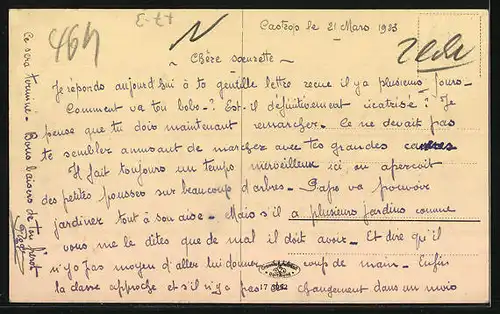 464
E-tt
N
Castrop le 21 Mars 1923
~ Chère sœurette ~
Je réponds aujourd'hui à ta gentille lettre reçue il y a plusieurs jours-
Comment va ton bobo-? Est-il définitivement cicatrisé? Je
pense que tu dois maintenant remarcher- Ce ne devait pas
te sembler amusant de marcher avec tes grandes cannes
Il fait toujours un temps merveilleux ici, on aperçoit
des petites pousses sur beaucoup d'arbres- Papa va pouvoir
jardiner tout à son aise- Mais s'il a plusieurs jardins comme
vous me le dites que de mal il doit avoir- Et dire qu'il
n'y a pas moyen d'aller lui donner coup de main- Enfin
la classe approche et s'il n'y a pas de changement dans un mois
ce sera terminé- Bons baisers de ton frérot